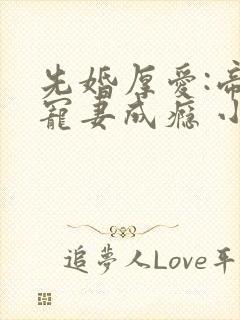 先婚厚爱:帝
寵妻成瘾 小
追夢人Love平